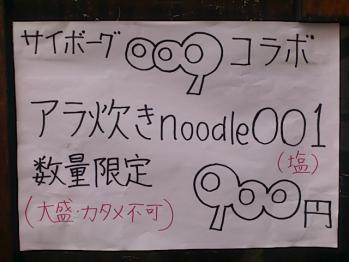 サイボーグ009コラボ
アラ炊きnoodle001
(塩)
数量限定
(大盛・カタメ不可)
900円